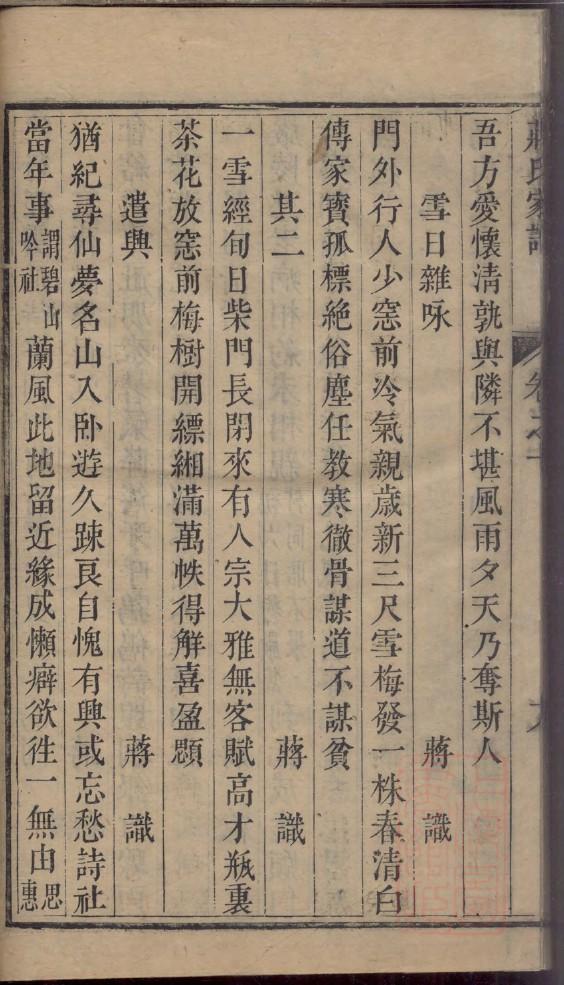 蔣氏家譜
卷之一
九
吾方愛懷清孰與隣不堪風雨夕天乃奪斯人
雪日雜咏　蔣　識
門外行人少窓前冷氣親歲新三尺雪梅發一株春清白
傳家寶孤標絕俗塵任教寒徹骨謀道不謀貧
其二　蔣　識
一雪經旬日柴門長閉來有人宗大雅無客賦高才瓶裏
茶花放窓前梅樹開縹緗滿萬帙得觧喜盈題
遣興　蔣　識
猶紀尋仙夢名山入卧遊久踈良自愧有興或忘愁詩社
當年事謂碧山吟社蘭風此地留近緣成懶癖欲徃一無由思惠